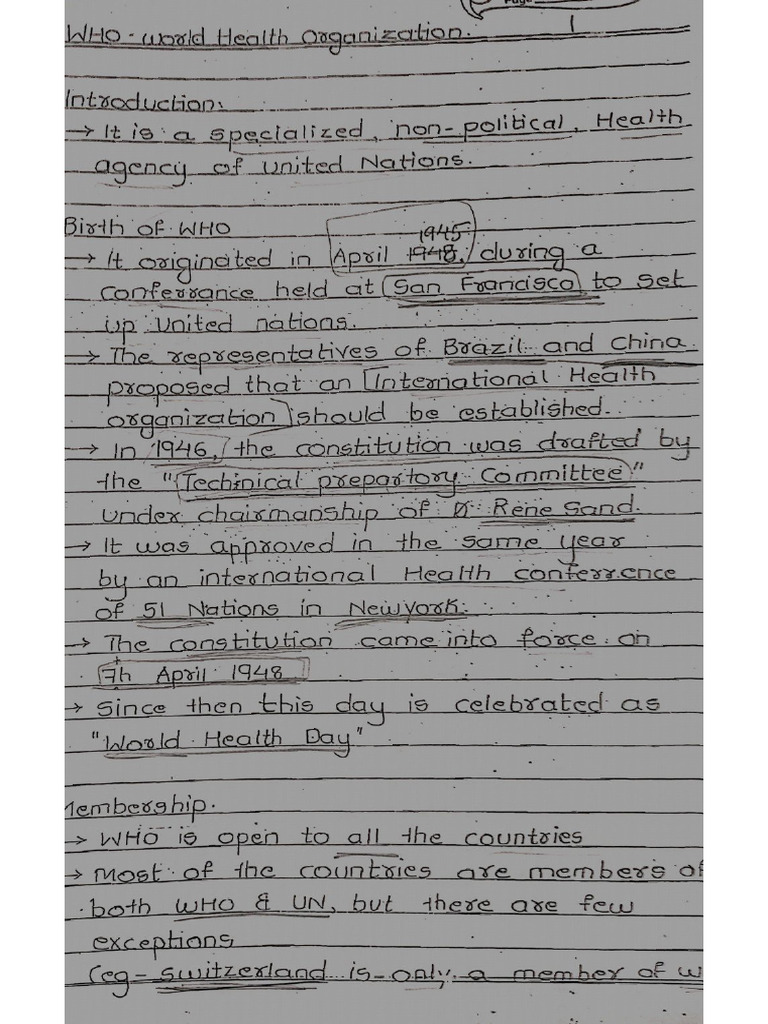 Page
1
WHO - World Health Organization.
Introduction:
→ It is a specialized, non-political, Health
agency of United Nations.
Birth of WHO
1945
→ It originated in April 1948, during a
conferrance held at San Francisco to set
up United nations.
→ The representatives of Brazil and China
proposed that an International Health
organization should be established.
→ In 1946, the constitution was drafted by
the "Techinical prepartory Committee"
under chairmanship of Dr Rene Sand.
→ It was approved in the same year
by an international Health conferrence
of 51 Nations in Newyork.
→ The constitution came into force on
7th April 1948
→ Since then this day is celebrated as
"World Health Day"
Membership.
→ WHO is open to all the countries
→ Most of the countries are members of
both WHO & UN, but there are few
exceptions
(eg - Switzerland is only a member of W